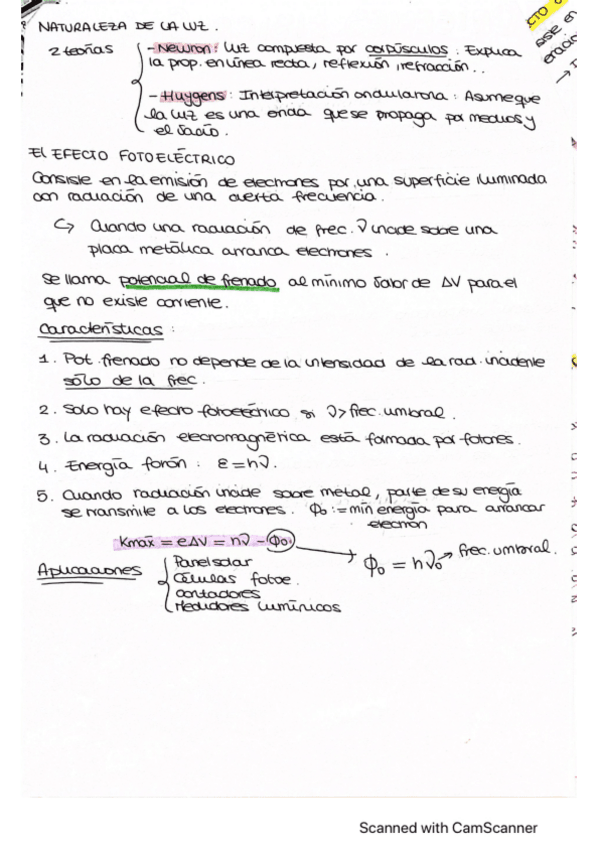 NATURALEZA DE LA LUZ.
2 teorías
- Newton: luz compuesta por corpúsculos. Explica
la prop. en línea recta, reflexión, refracción..
- Huygens: Interpretación ondulatoria: Asume que
la luz es una onda que se propaga por medios y
el vacío.
El EFECTO FOTOELÉCTRICO
Consiste en la emisión de electrones por una superficie iluminada
con radiación de una cierta frecuencia.
↳ Cuando una radiación de frec. ν incide sobre una
placa metálica arranca electrones.
Se llama potencial de frenado al mínimo valor de ΔV para el
que no existe corriente.
Características:
1. Pot. frenado no depende de la intensidad de la rad. incidente
sólo de la frec.
2. Solo hay efecto fotoeléctrico si ν > frec. umbral.
3. La radiación electromagnética está formada por fotones.
4. Energía fotón: ε = hν.
5. Cuando radiación incide sobre metal, parte de su energía
se transmite a los electrones. Φ₀ := mín energía para arrancar
electrón
Kmáx = eΔV = hν - Φ₀ → Φ₀ = hν₀ → frec. umbral.
Aplicaciones
Panel solar
Células fotoe.
contadores
Medidores lumínicos
Scanned with CamScanner